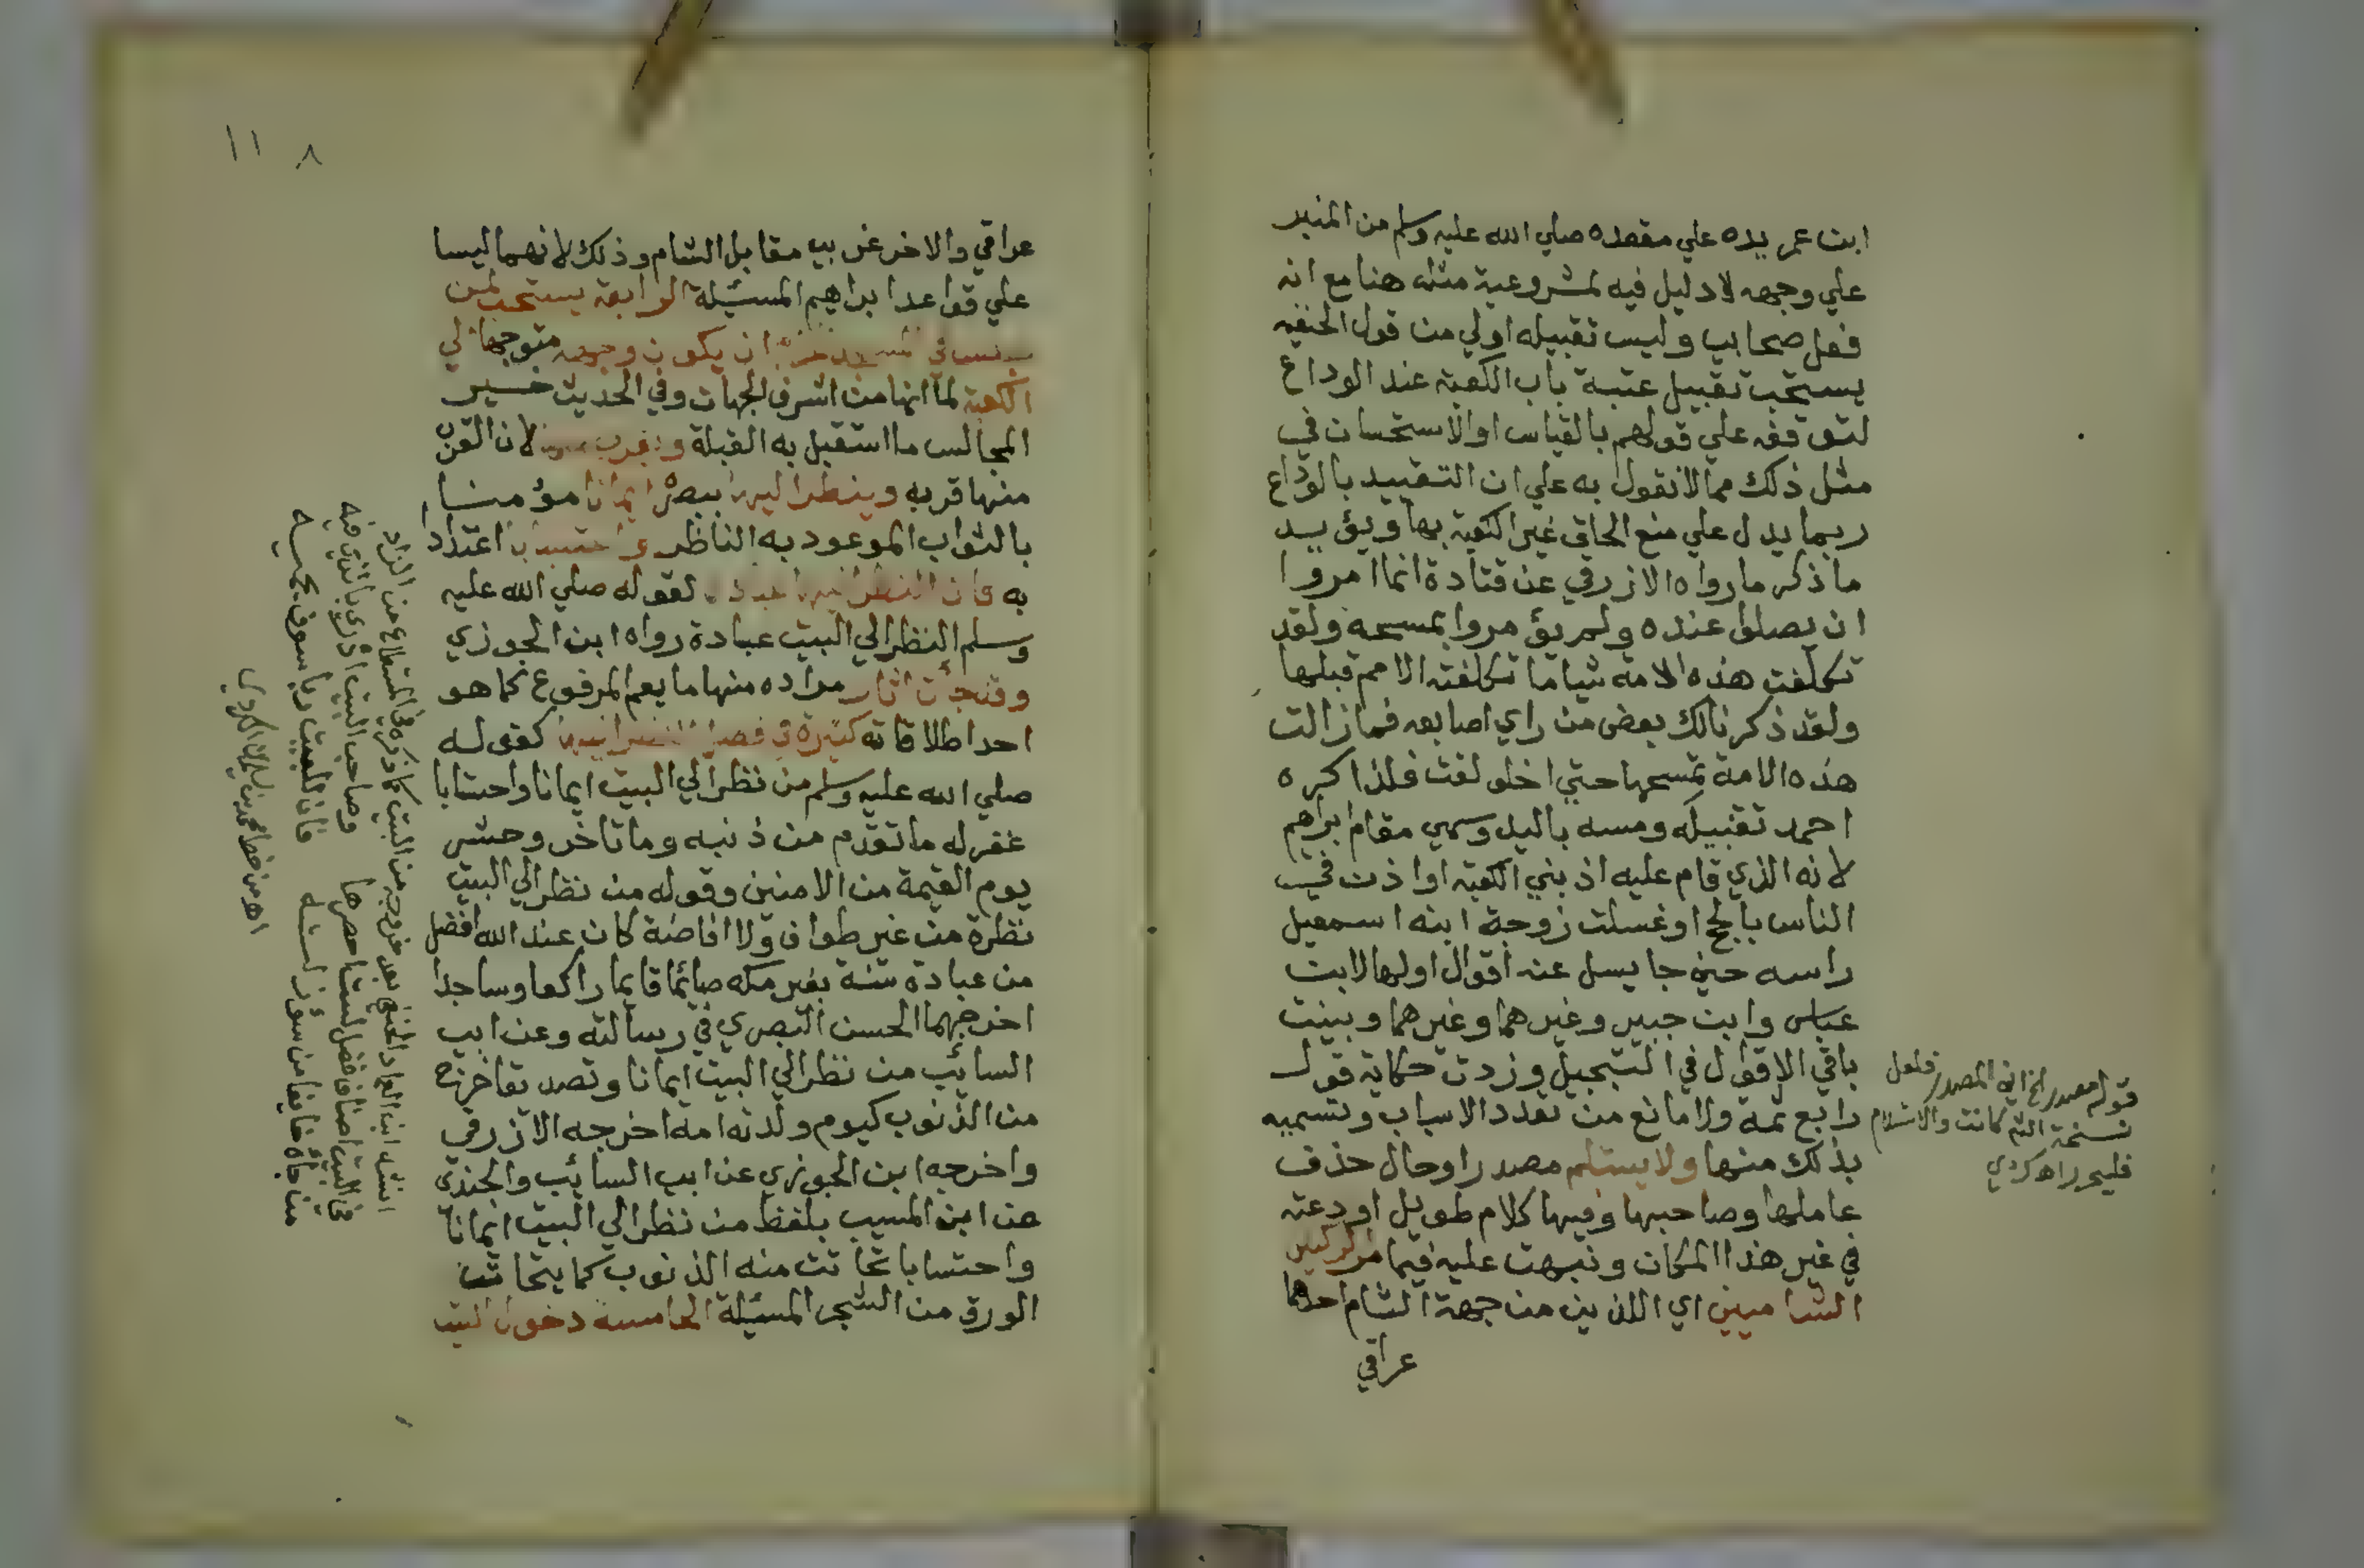 ابن عمر يده علي مقعده صلي الله عليه وسلم من المنبر
علي وجهه لا دليل فيه لمشروعية مثله هنا مع انه
فعل صحابي وليس تقبيله اولي من قول الحنفيه
يستحب تقبيل عتبة باب الكعبة عند الوداع
لتوقفه علي قولهم بالقياس او الاستحسان في
مثل ذلك مما لا نقول به علي ان التقييد بالوداع
ربما يدل علي منع الحاق غير الكعبة بها ويؤيد
ما ذكر ما رواه الازرقي عن قتادة انما امروا
ان يصلوا عنده ولم يؤمروا بمسحه ولقد
تكلفت هذه الامة شيا ما تكلفته الامم قبلها
ولقد ذكر نالك بعض من راي اصابعه فما زالت
هذه الامة تمسحها حتي اخلولقت فلذا كره
احمد تقبيله ومسه باليد وسمي مقام ابراهيم
لانه الذي قام عليه اذ بني الكعبة او اذن في
الناس بالحج او غسلت زوجة ابنه اسمعيل
راسه حين جا يسل عنه اقوال اولها لابن
عباس وابن جبير وغيرهما وغيرهما وبينت
باقي الاقوال في التبجيل وزدت حكاية قول
رابع ثمه ولا مانع من تعدد الاسباب وتسميه
بذلك منها ولا يستلم مصدر او حال حذف
عاملها وصاحبها وفيها كلام طويل اودعته
في غير هذا المكان ونبهت عليه فيما مر
الشاميين اي اللذين من جهة الشام احدهما
عراقي
قوله مصدر الخ المصدر فلعل
نسخة التم كانت والاستلام
فليحرر اه كردي
١١٨
عراقي والاخر غربي مقابل الشام وذلك لانهما ليسا
علي قواعد ابراهيم المسئلة الرابعة يستحب لمن
ان يكون وجهه متوجها الي
الكعبة لما انها من اشرف الجهات وفي الحديث خير
المجالس ما استقبل به القبلة ويقرب منها لان القرب
منها قربه وينظر اليها ببصره ايمانا مؤمنا
بالثواب الموعود به الناظر واحتسابا اعتدادا
به فان النظر اليها عبادة لقوله صلي الله عليه
وسلم النظر الي البيت عبادة رواه ابن الجوزي
وقد جأت اثار مراده منها ما يعم المرفوع كما هو
احد اطلاقاته كثيرة في فضل النظر اليها كقوله
صلي الله عليه وسلم من نظر الي البيت ايمانا واحتسابا
غفر له ما تقدم من ذنبه وما تاخر وحشر
يوم القيمة من الامنين وقوله من نظر الي البيت
نظرة من غير طواف ولا افاضة كان عند الله افضل
من عبادة سنة بغير مكه صائما قايما راكعا وساجدا
اخرجهما الحسن البصري في رسالته وعن ابي
السائب من نظر الي البيت ايمانا وتصديقا خرج
من الذنوب كيوم ولدته امه اخرجه الازرقي
واخرجه ابن الجوزي عن ابي السائب والجندي
عن ابن المسيب بلفظ من نظر الي البيت ايمانا
واحتسابا تحاتت منه الذنوب كما يتحات
الورق من الشجر المسئلة الخامسة دخول البيت
انشد ابن العماد الحنبلي بعد خروجه من البيت كما ذكره في من الزاد
وصاحب البيت ادري بالذي فيه
فان للبيت ربا سوف يحميه
اه من خط محمد بن سليمان الكردي